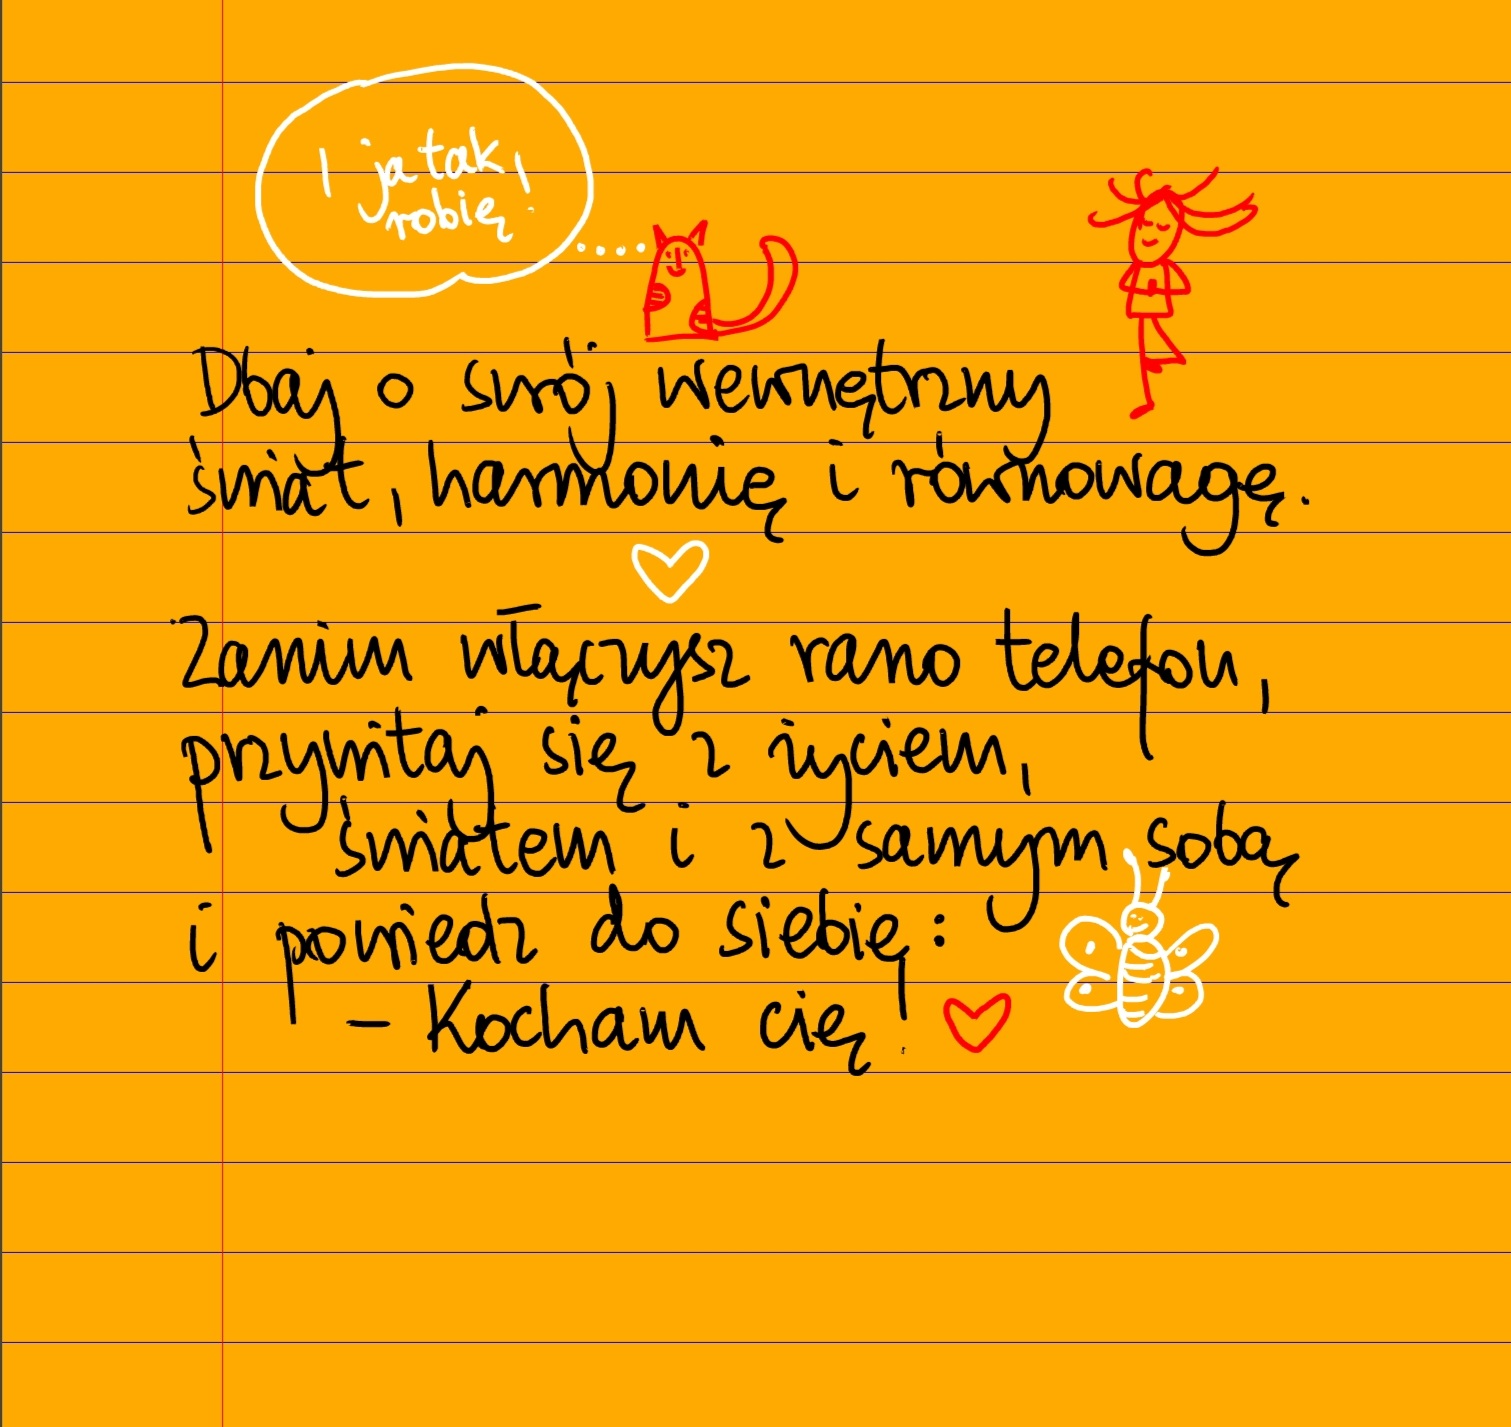 I ja tak
robię!
Dbaj o swój wewnętrzny
świat, harmonię i równowagę.
Zanim włączysz rano telefon,
przywitaj się z życiem,
światem i z samym sobą
i powiedz do siebię:
- Kocham cię!